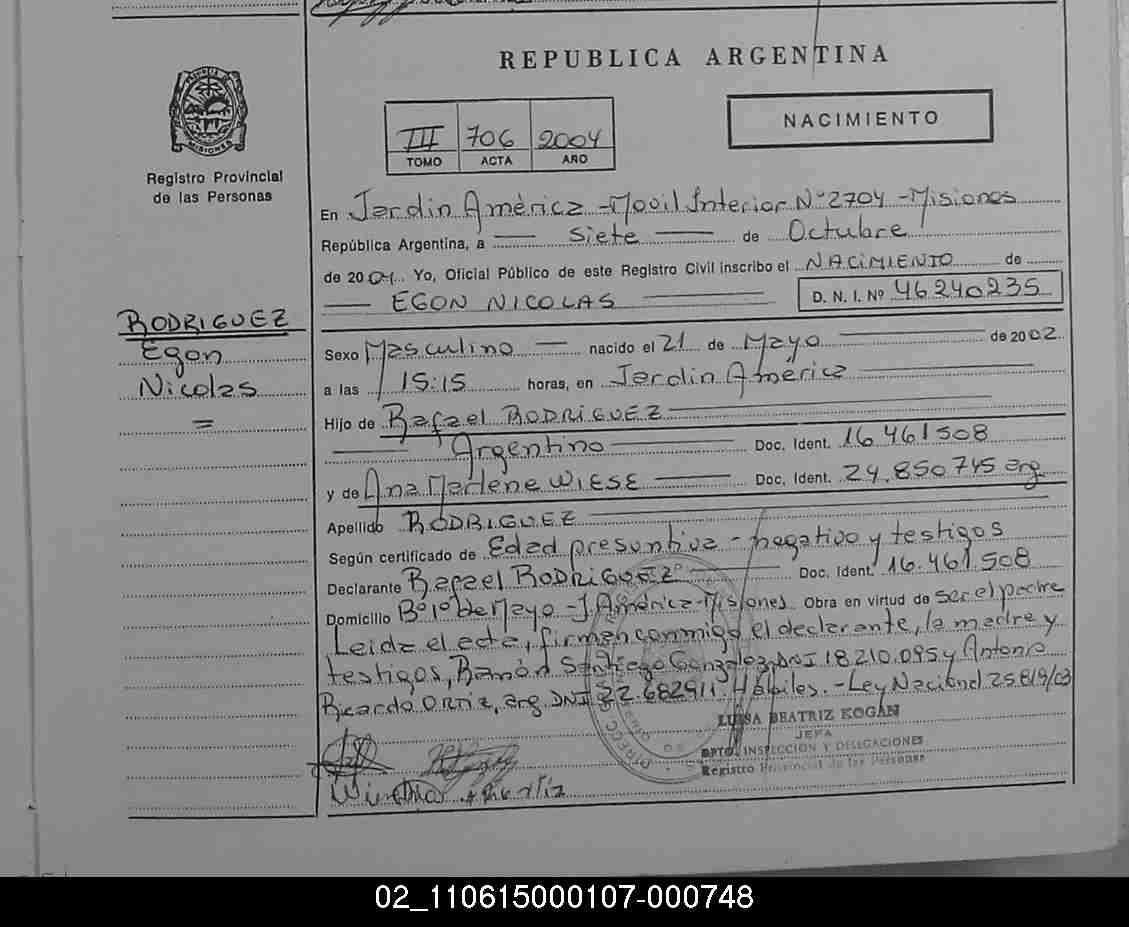 REPUBLICA ARGENTINA
III 706 2004
TOMO ACTA AÑO
NACIMIENTO
PROVINCIA DE
MISIONES
Registro Provincial
de las Personas
RODRIGUEZ
Egon
Nicolas
=
En Jardin América - Movil Interior N° 2704 - Misiones
República Argentina, a — siete — de Octubre
de 2004. Yo, Oficial Público de este Registro Civil inscribo el NACIMIENTO de
— EGON NICOLAS — D. N. I. Nº 46240235
Sexo Masculino — nacido el 21 de Mayo — de 2002
a las 15:15 horas, en Jardin América —
Hijo de Rafael RODRIGUEZ —
— Argentino — Doc. Ident. 16.461508
y de Ana Marlene WIESE — Doc. Ident. 24.850745 arg.
Apellido RODRIGUEZ —
Según certificado de Edad presuntiva - negativo y testigos
Declarante Rafael RODRIGUEZ — Doc. Ident. 16.461.508
Domicilio B° 1° De Mayo - J. América - Misiones Obra en virtud de ser el padre
Leida el acta, firman conmigo el declarante, la madre y
testigos, Ramón Santiago Gonzalez, DNI 18.210.095 y Antonio
Ricardo ORTIZ, arg. DNI 22.682911. Hábiles. - Ley Nacional 25.819/03
LUISA BEATRIZ KOGAN
JEFA
DPTO. INSPECCION Y DELEGACIONES
Registro Provincial de las Personas
02_110615000107-000748